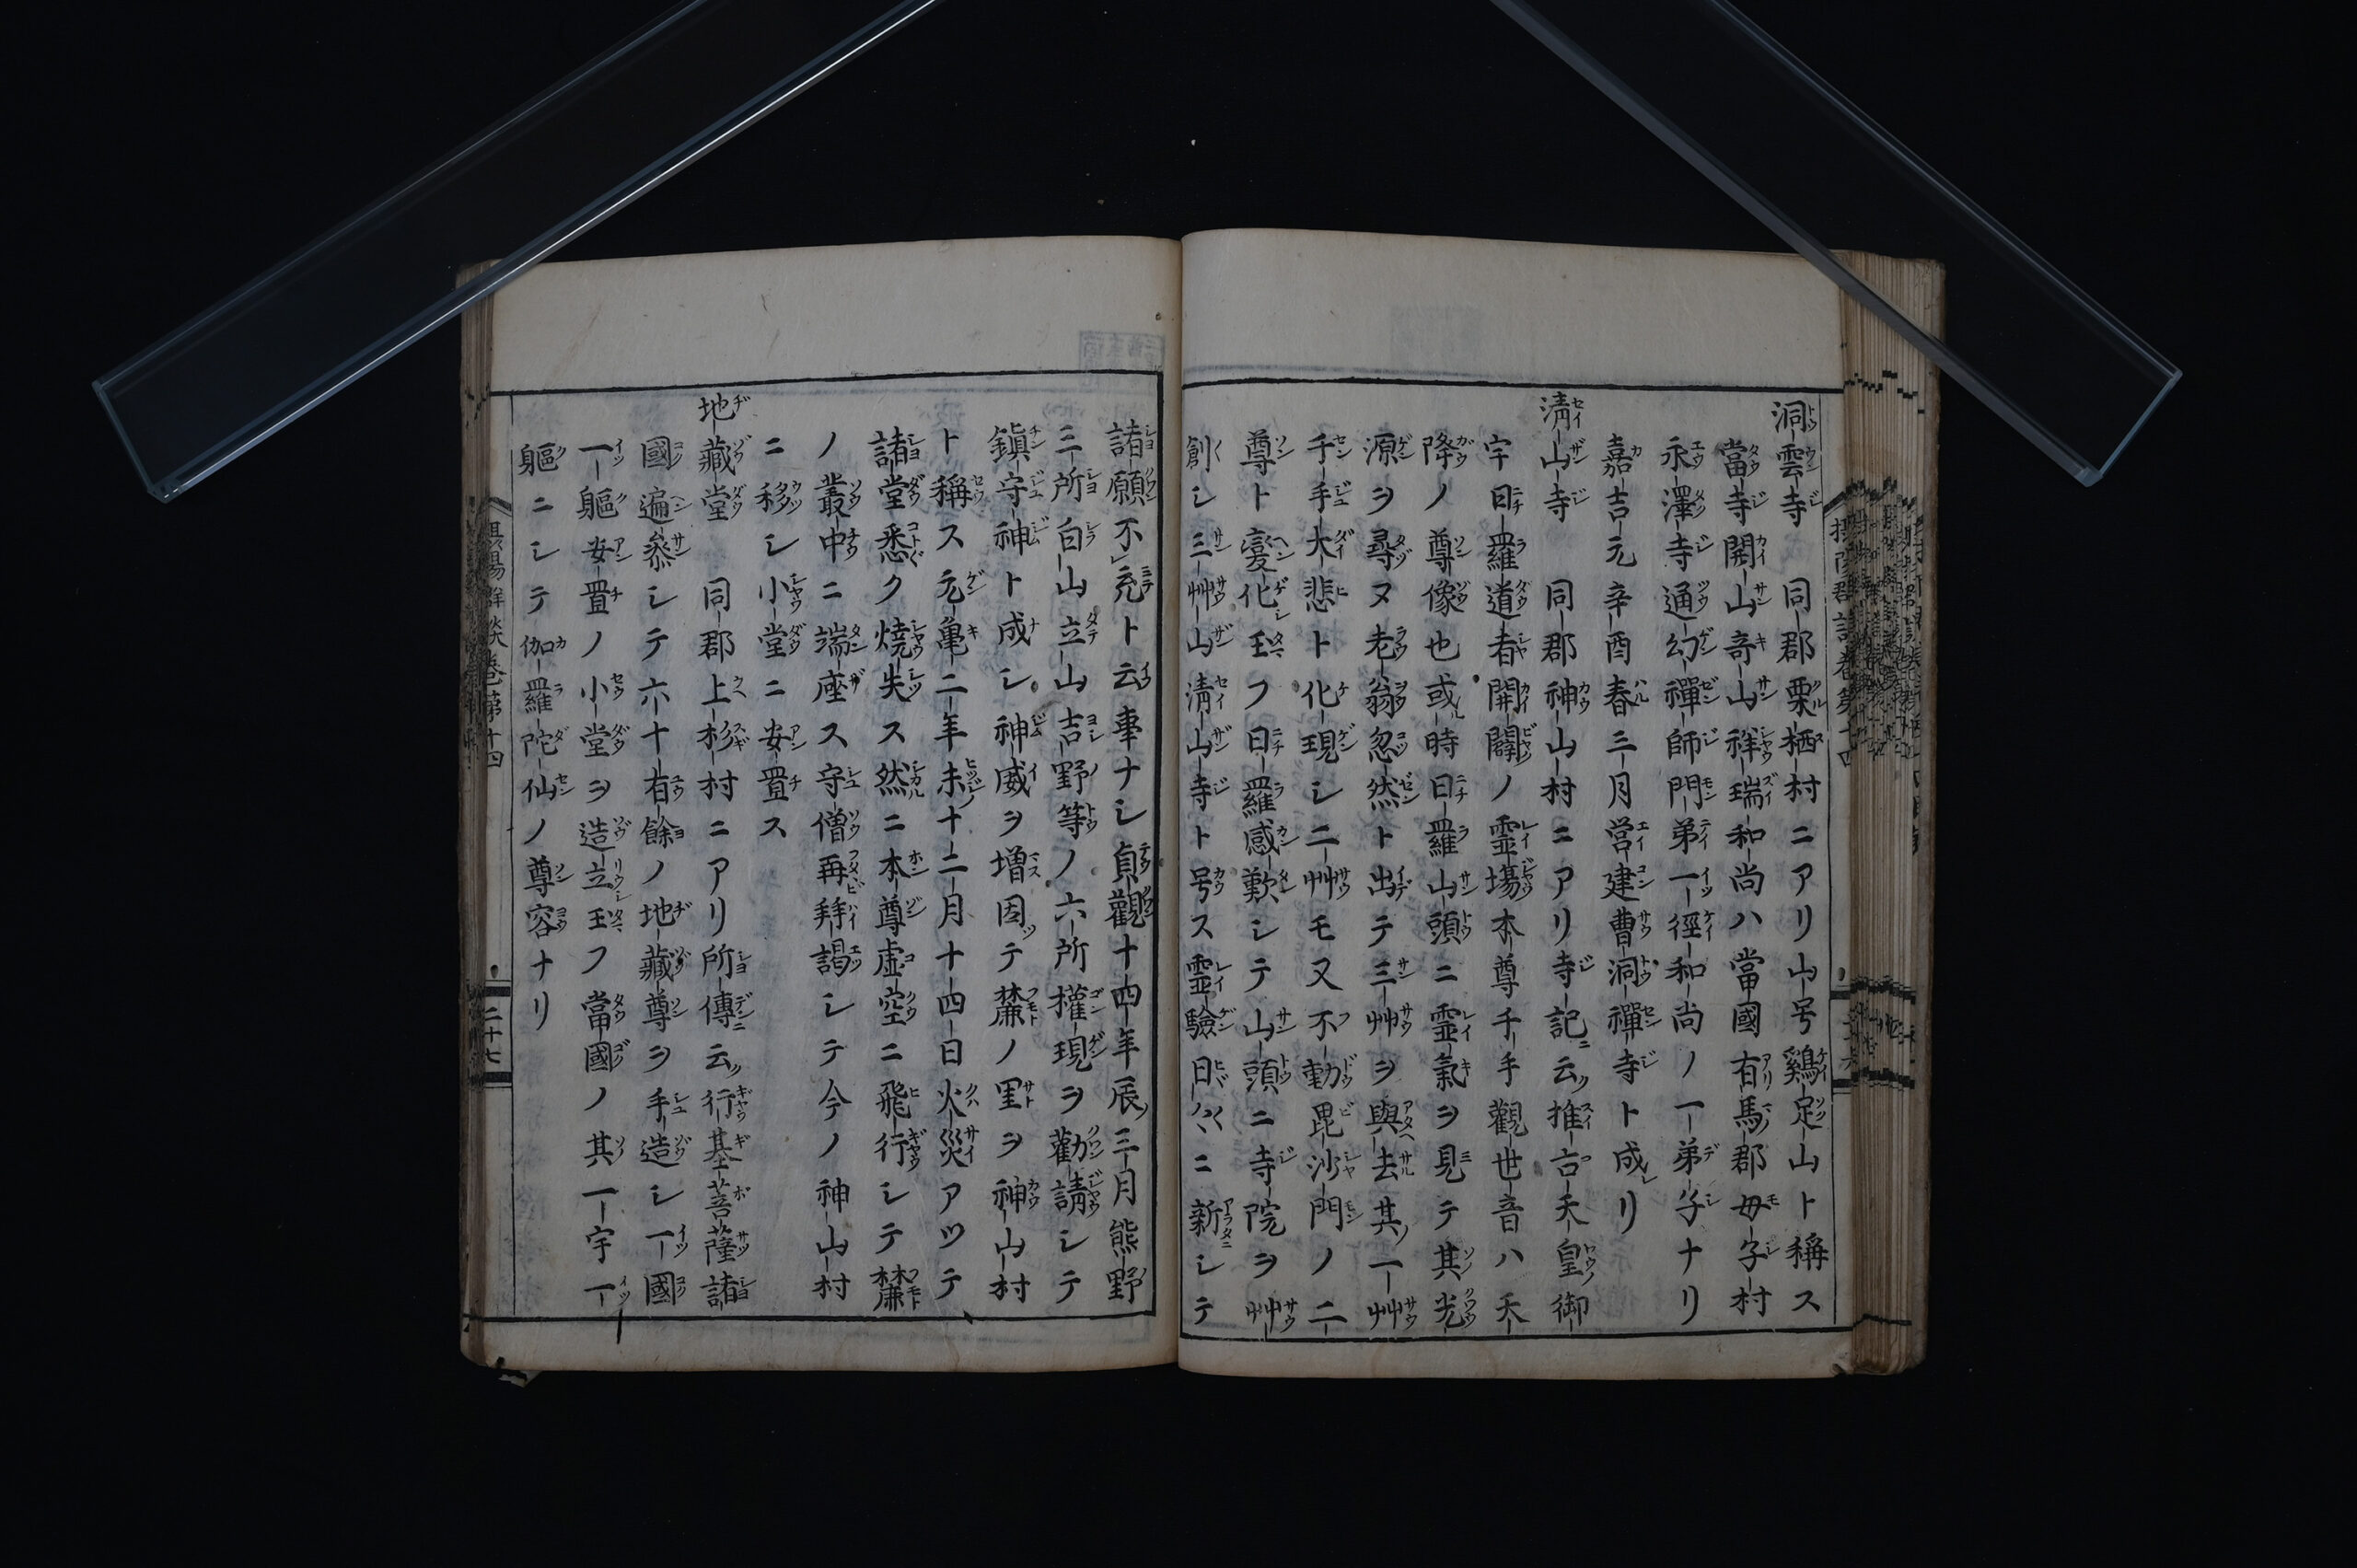 洞雲寺 同郡栗栖村ニアリ山号鷄足山ト稱ス
當寺開山竒山祥瑞和尚ハ當國有馬郡母子村
永澤寺通幻禪師門弟一徑和尚ノ一弟子ナリ
嘉吉元辛酉春三月営建曹洞禪寺ト成リ
淸山寺 同郡神山村ニアリ寺記云推古天皇御
宇日羅道者開闢ノ霊塲本尊千手觀世音ハ天
降ノ尊像也或時日羅山頭ニ霊氣ヲ見テ其光
源ヲ尋ヌ老翁忽然ト出テ三艸ヲ與去其一艸
千手大悲ト化現シ二艸モ又不動毘沙門ノ二
尊ト變化玉フ日羅感歎シテ山頭ニ寺院ヲ艸
創シ三艸山淸山寺ト号ス霊驗日〻ニ新シテ
諸願不充ト云事ナシ貞觀十四年辰三月熊野
三所白山立山吉野等ノ六所權現ヲ勸請シテ
鎮守神ト成シ神威ヲ増因テ麓ノ里ヲ神山村
ト稱ス元亀二年未十二月十四日火災アツテ
諸堂悉ク燒失ス然ニ本尊虚空ニ飛行シテ麓
ノ叢中ニ端座ス守僧再拜謁シテ今ノ神山村
ニ移シ小堂ニ安置ス
地藏堂 同郡上杉村ニアリ所傳云行基菩薩諸
國遍參シテ六十有餘ノ地藏尊ヲ手造シ一國
一軀安置ノ小堂ヲ造立玉フ當國ノ其一宇一
軀ニシテ伽羅陀仙ノ尊容ナリ
二十七